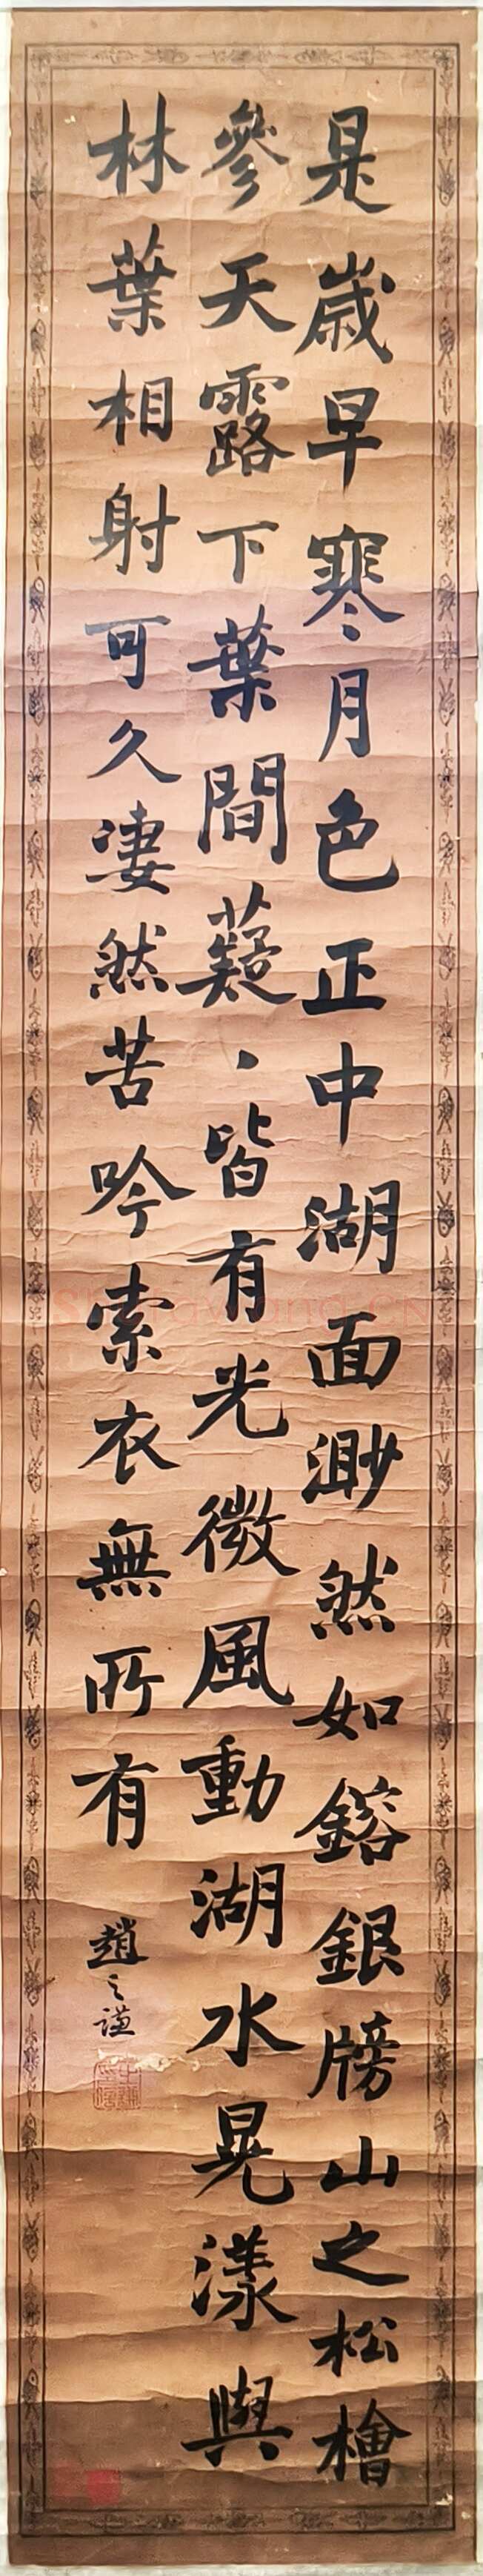 是歳早寒月色正中湖面渺然如鎔銀牓山之松檜
參天露下葉間薿、皆有光微風動湖水晃漾與
林葉相射可久凄然苦吟索衣無所有
趙之謙